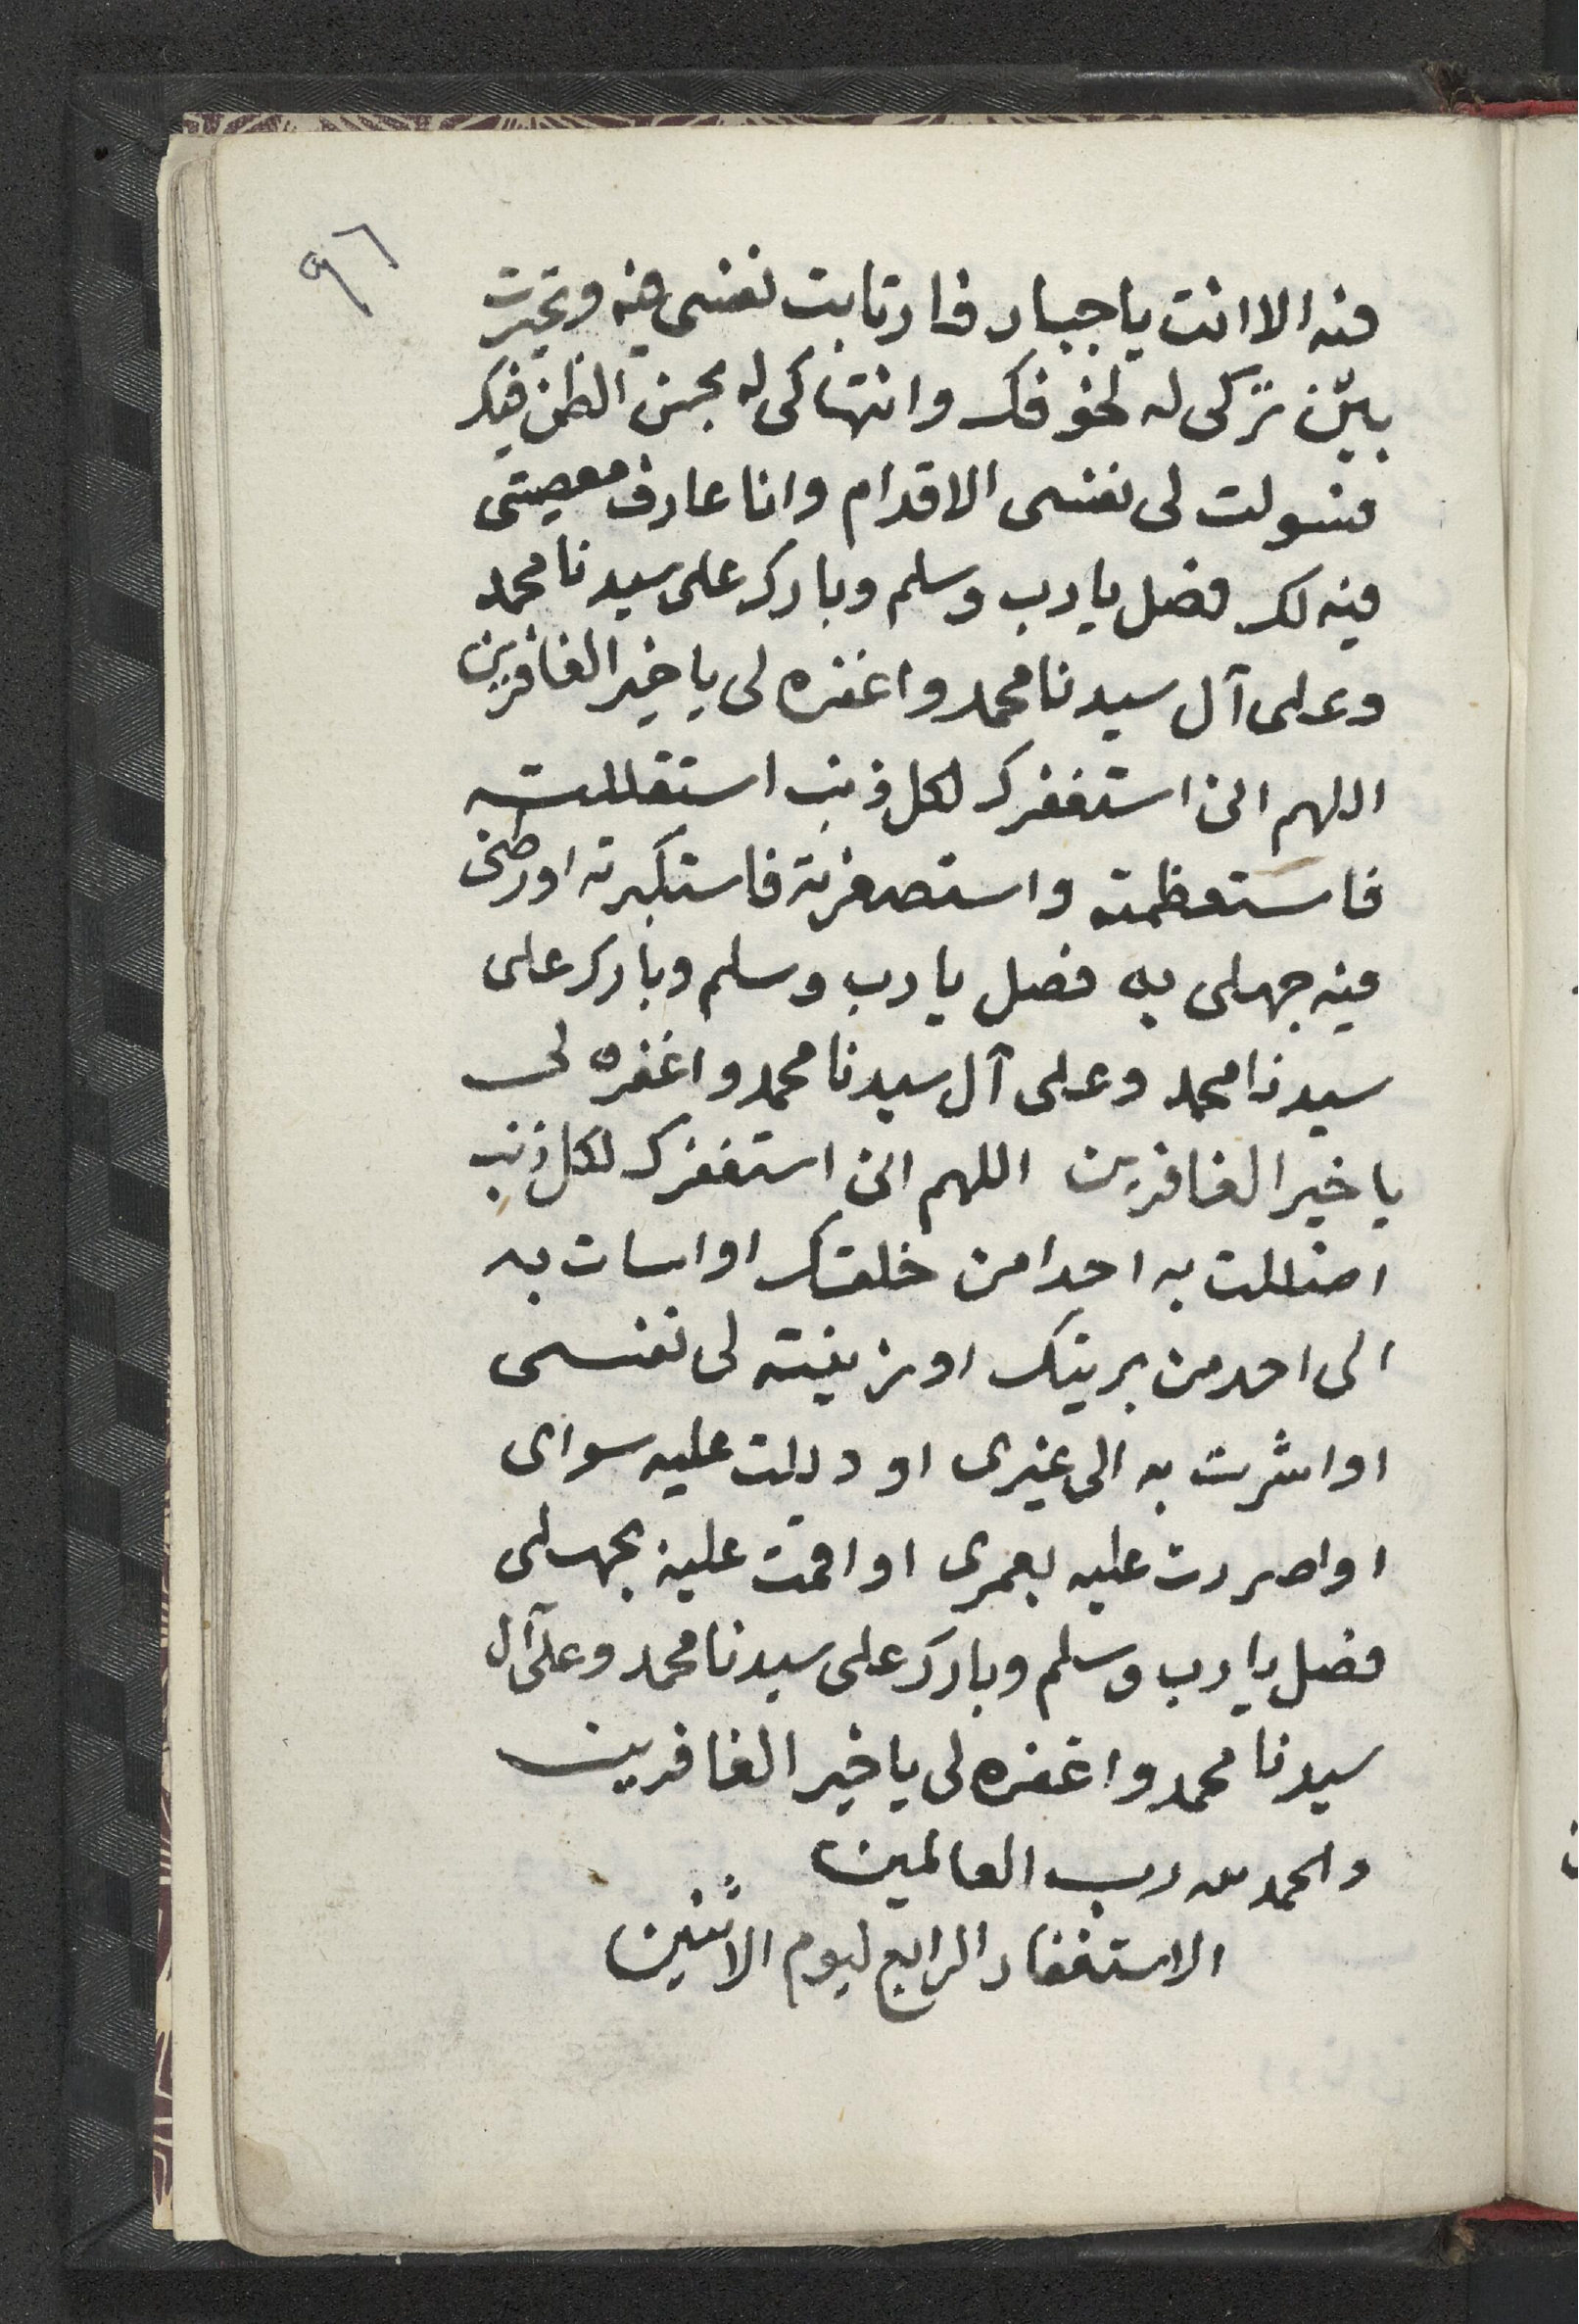 ٩٦
منه الا انت يا جبار فارتابت نفسى فيه وتحيرت
بين تركى له لخوفك وانتهاكى له بحسن الظن فيك
فسولت لى نفسى الاقدام وانا عارف معصيتى
فيه لك فصل يا رب وسلم وبارك على سيدنا محمد
وعلى آل سيدنا محمد واغفره لى يا خير الغافرين
اللهم انى استغفرك لكل ذنب استقللته
فاستعظمته واستصغرته فاستكبرته اورطنى
فيه جهلى به فصل يا رب وسلم وبارك على
سيدنا محمد وعلى آل سيدنا محمد واغفره لى
يا خير الغافرين اللهم انى استغفرك لكل ذنب
اضللت به احدا من خلقك او اسات به
الى احد من بريتك او زينته لى نفسى
او اشرت به الى غيرى او دللت عليه سواى
او اصررت عليه بعمرى او اقمت عليه بجهلى
فصل يا رب وسلم وبارك على سيدنا محمد وعلى آل
سيدنا محمد واغفره لى يا خير الغافرين
والحمد لله رب العالمين
الاستغفار الرابع ليوم الاثنين